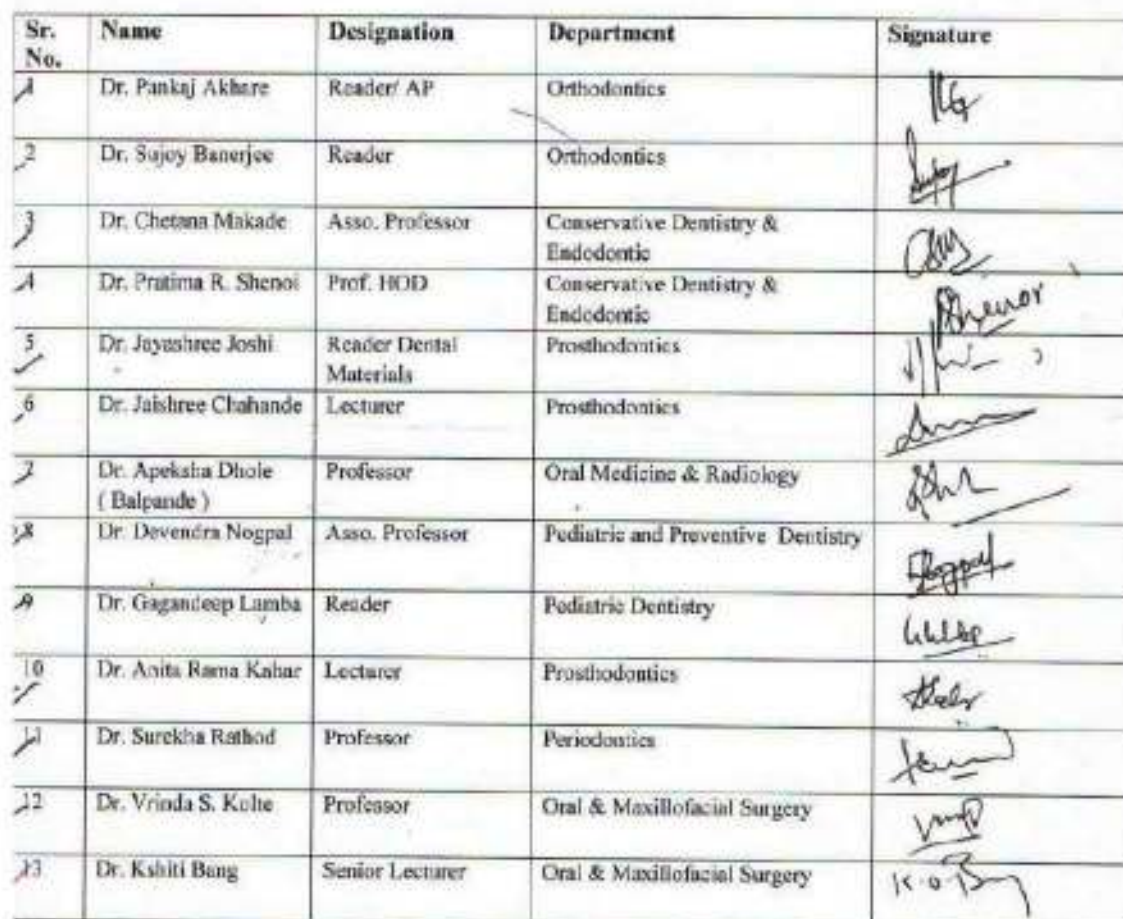 Sr. No. Name Designation Department Signature
1 Dr. Pankaj Akhare Reader/ AP Orthodontics
2 Dr. Sujoy Banerjee Reader Orthodontics
3 Dr. Chetana Makade Asso. Professor Conservative Dentistry & Endodontic
4 Dr. Pratima R. Shenoi Prof. HOD Conservative Dentistry & Endodontic
5 Dr. Jayashree Joshi Reader Dental Materials Prosthodontics
6 Dr. Jaishree Chahande Lecturer Prosthodontics
7 Dr. Apeksha Dhole ( Balpande ) Professor Oral Medicine & Radiology
8 Dr. Devendra Nogpal Asso. Professor Pediatric and Preventive Dentistry
9 Dr. Gagandeep Lamba Reader Pediatric Dentistry
10 Dr. Anita Rama Kahar Lecturer Prosthodontics
11 Dr. Surekha Rathod Professor Periodontics
12 Dr. Vrinda S. Kolte Professor Oral & Maxillofacial Surgery
13 Dr. Kshiti Bang Senior Lecturer Oral & Maxillofacial Surgery